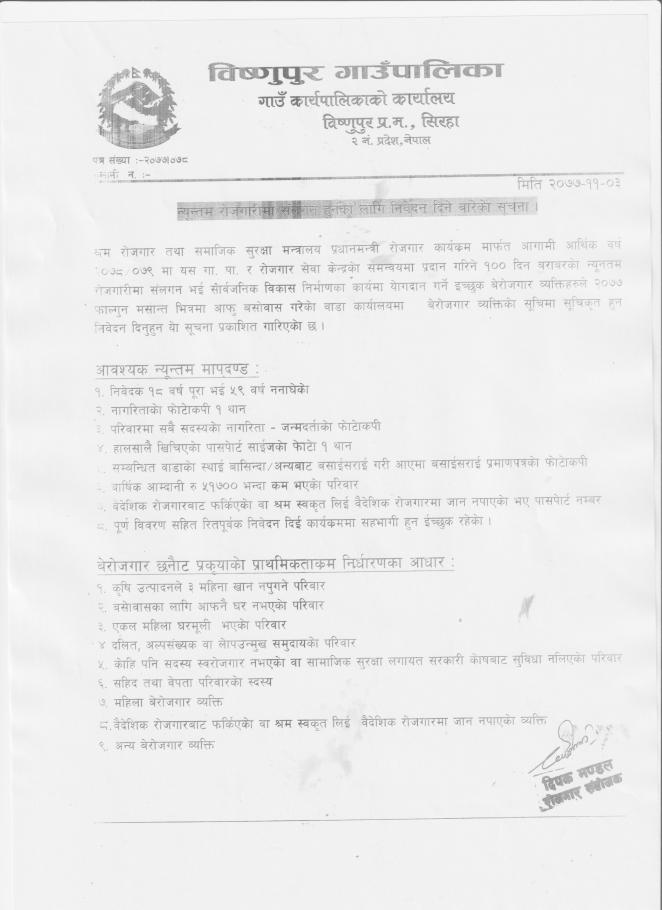 विष्णुपुर गाउँपालिका
गाउँ कार्यपालिकाको कार्यालय
विष्णुपुर प्र.म., सिरहा
२ नं. प्रदेश,नेपाल
पत्र संख्या :-२०७७/०७८
न. :-
मिति २०७७-११-०३
न्यून्तम रोजगारीमा संलग्न हुनको लागि निवेदन दिने बारेको सूचना ।
श्रम रोजगार तथा समाजिक सुरक्षा मन्त्रालय प्रधानमन्त्री रोजगार कार्यक्रम मार्फत आगामी आर्थिक वर्ष
२०७८/०७९ मा यस गा. पा. र रोजगार सेवा केन्द्रको समन्वयमा प्रदान गरिने १०० दिन बराबरको न्यूनतम
रोजगारीमा संलगन भई सार्वजनिक विकास निर्माणका कार्यमा योगदान गर्ने इच्छुक बेरोजगार व्यक्तिहरुले २०७७
फाल्गुन मसान्त भित्रमा आफु बसोवास गरेको वाडा कार्यालयमा बेरोजगार व्यक्तिको सूचिमा सूचिकृत हुन
निवेदन दिनुहुन यो सूचना प्रकाशित गारिएको छ ।
आवश्यक न्यून्तम मापदण्ड :
१. निवेदक १८ वर्ष पूरा भई ५९ वर्ष ननाघेको
२. नागरिताको फोटोकपी १ थान
३. परिवारमा सबै सदस्यको नागरिता - जन्मदर्ताको फोटोकपी
४. हालसालै खिचिएको पासपोर्ट साईजको फोटो १ थान
. सम्बन्धित वाडाको स्थाई बासिन्दा/अन्यबाट बसाईसराई गरी आएमा बसाईसराई प्रमाणपत्रको फोटोकपी
. बार्षिक आम्दानी रु ५१७०० भन्दा कम भएको परिवार
७. वैदेशिक रोजगारबाट फर्किएको वा श्रम स्वकृत लिई वैदेशिक रोजगारमा जान नपाएको भए पासपोर्ट नम्बर
८. पूर्ण विवरण सहित रितपूर्वक निवेदन दिई कार्यक्रममा सहभागी हुन ईच्छुक रहेको ।
बेरोजगार छनौट प्रकृयाको प्राथमिकताकम निर्धारणका आधार :
१. कृषि उत्पादनले ३ महिना खान नपुगने परिवार
२. बसोवासका लागि आफनै घर नभएको परिवार
३. एकल महिला घरमूली भएको परिवार
४ दलित, अल्पसंख्यक वा लोपउन्मुख समुदायको परिवार
५. कोहि पनि सदस्य स्वरोजगार नभएको वा सामाजिक सुरक्षा लगायत सरकारी कोषबाट सुविधा नलिएको परिवार
६. सहिद तथा वेपता परिवारको स्दस्य
७. महिला बेरोजगार व्यक्ति
८. वैदेशिक रोजगारबाट फर्किएको वा श्रम स्वकृत लिई वैदेशिक रोजगारमा जान नपाएको व्यक्ति
९. अन्य बेरोजगार व्यक्ति
दिपक मण्डल
रोजगार संयोजक